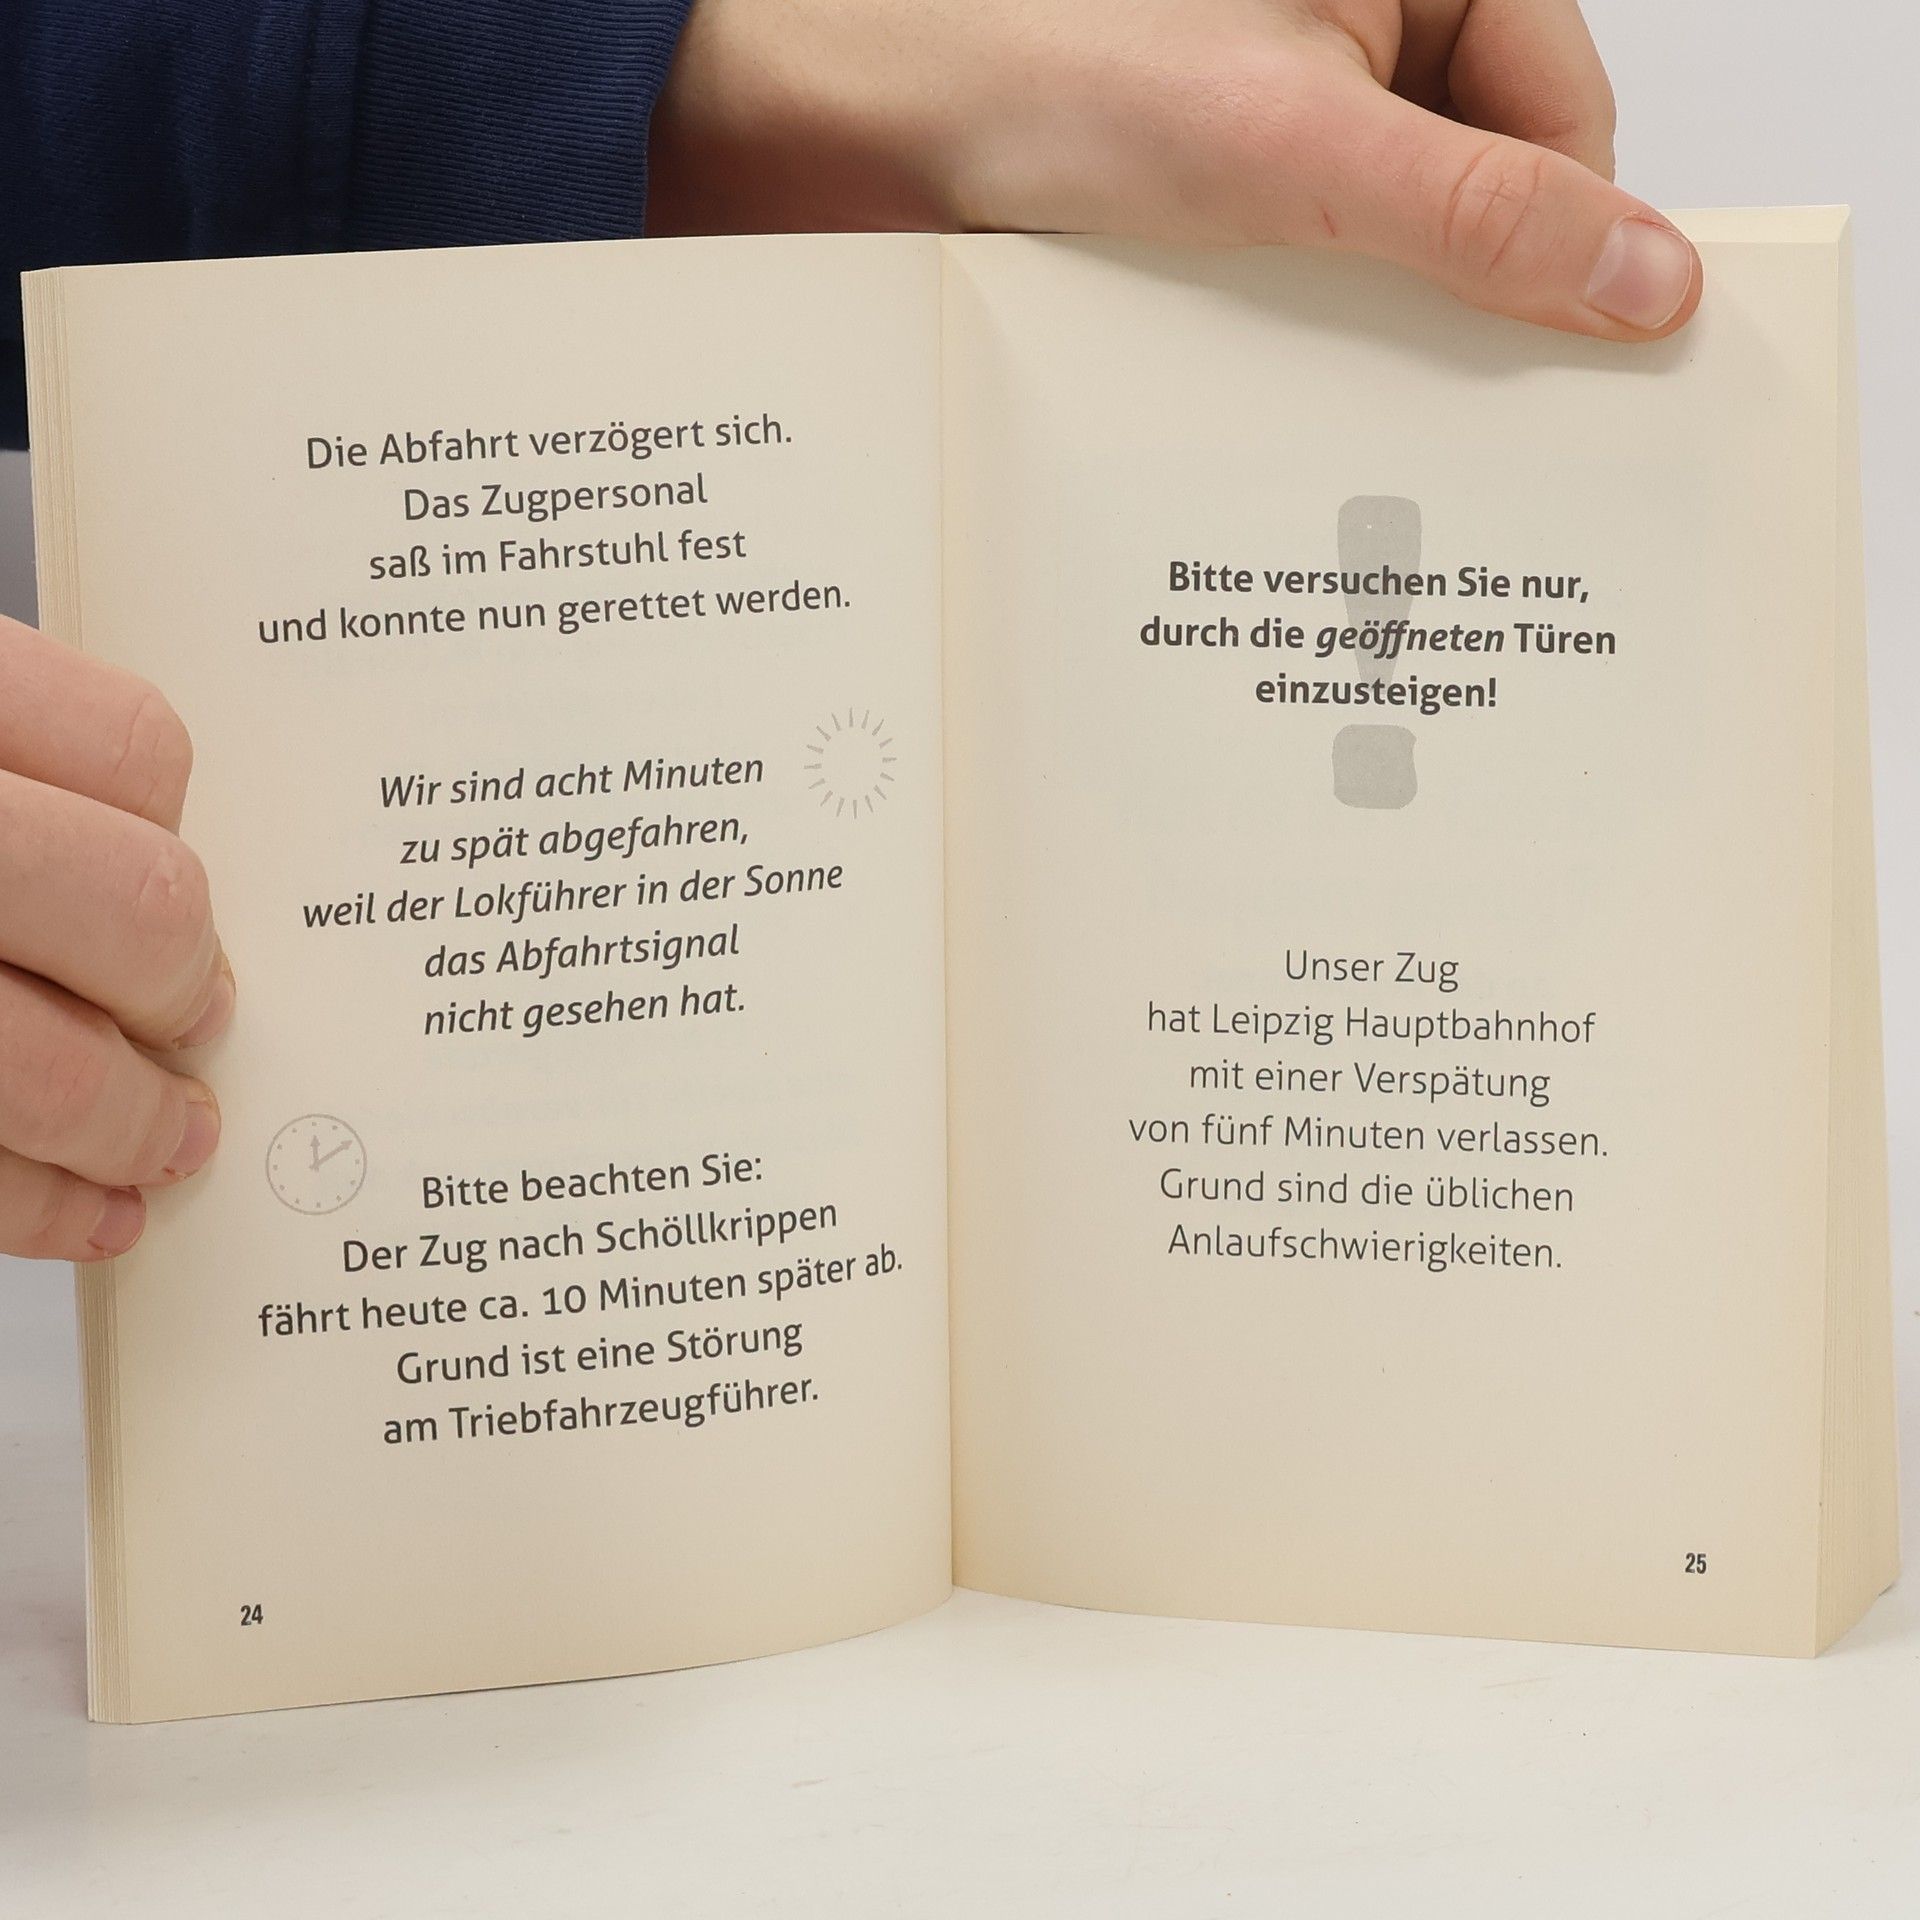 Die Abfahrt verzögert sich.
Das Zugpersonal
saß im Fahrstuhl fest
und konnte nun gerettet werden.
Wir sind acht Minuten
zu spät abgefahren,
weil der Lokführer in der Sonne
das Abfahrtsignal
nicht gesehen hat.
Bitte beachten Sie:
Der Zug nach Schöllkrippen
fährt heute ca. 10 Minuten später ab.
Grund ist eine Störung
am Triebfahrzeugführer.
24
Bitte versuchen Sie nur,
durch die geöffneten Türen
einzusteigen!
Unser Zug
hat Leipzig Hauptbahnhof
mit einer Verspätung
von fünf Minuten verlassen.
Grund sind die üblichen
Anlaufschwierigkeiten.
25